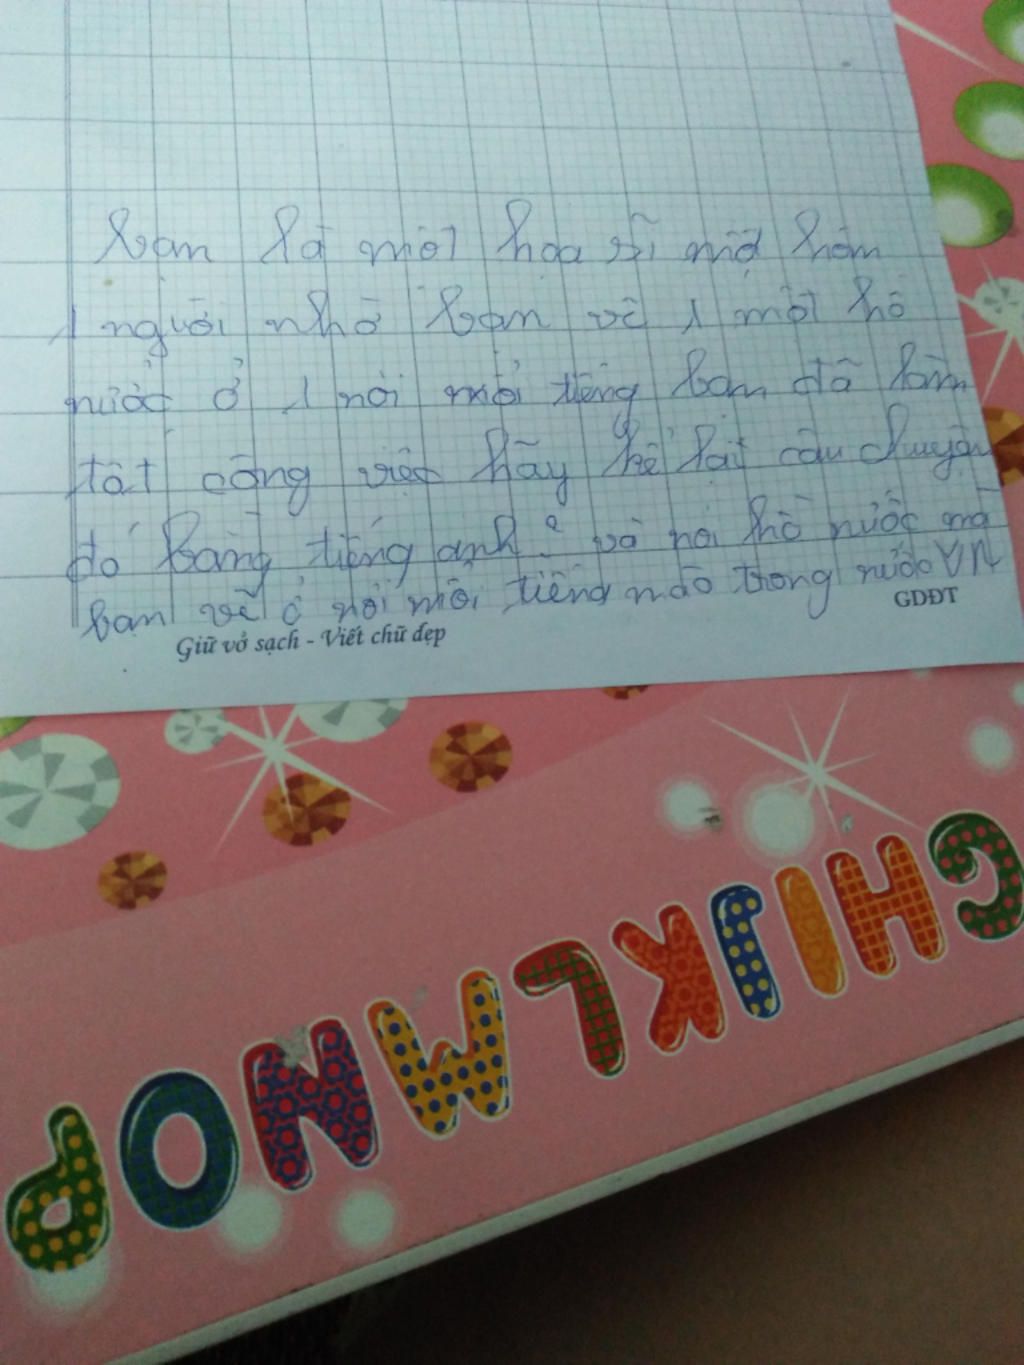 bạn là một họa sĩ một hôm
1 người nhờ bạn vẽ 1 một hồ
nước ở 1 nơi nổi tiếng bạn đã làm
tốt công việc hãy kể lại câu chuyện
đó bằng tiếng anh? và nơi hồ nước mà
bạn vẽ ở nơi nổi tiếng nào trong nước VN
Giữ vở sạch - Viết chữ đẹp
GDĐT
G H I J K L M N O P